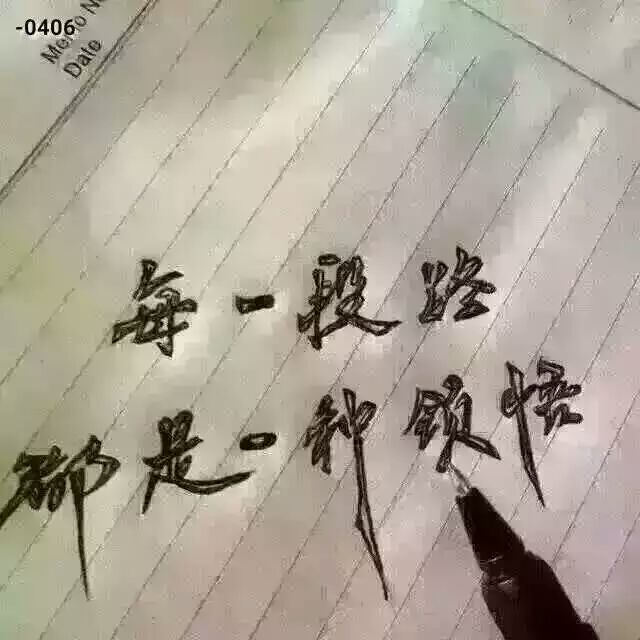 -0406
Memo No
Date
每一段路
都是一种领悟